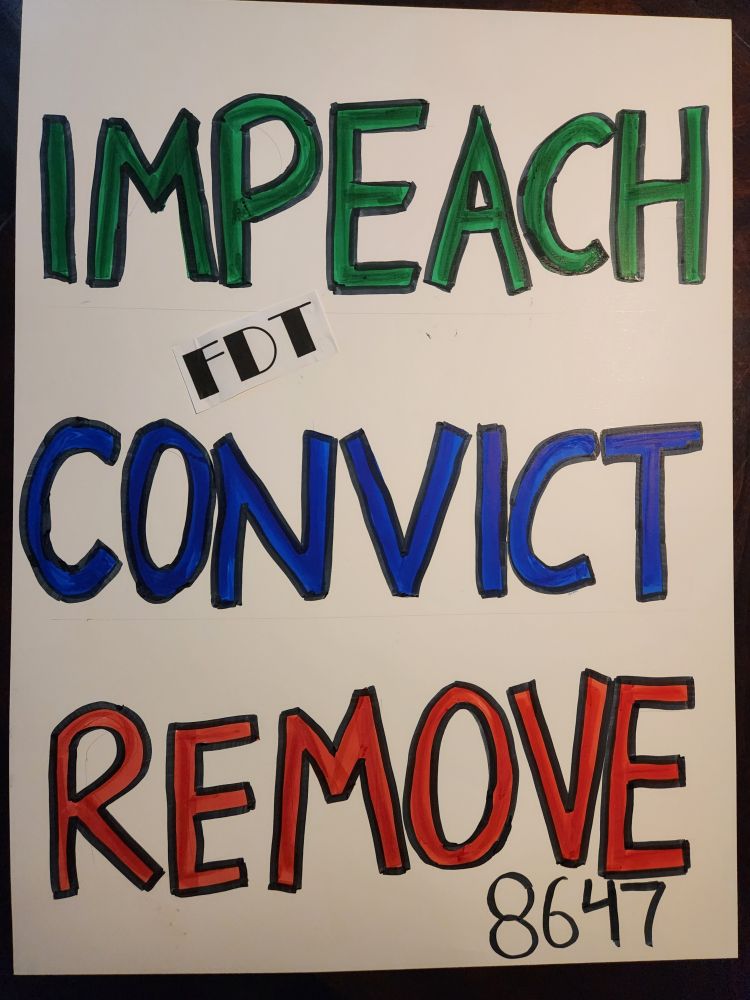 IMPEACH
FDT
CONVICT
REMOVE
8647